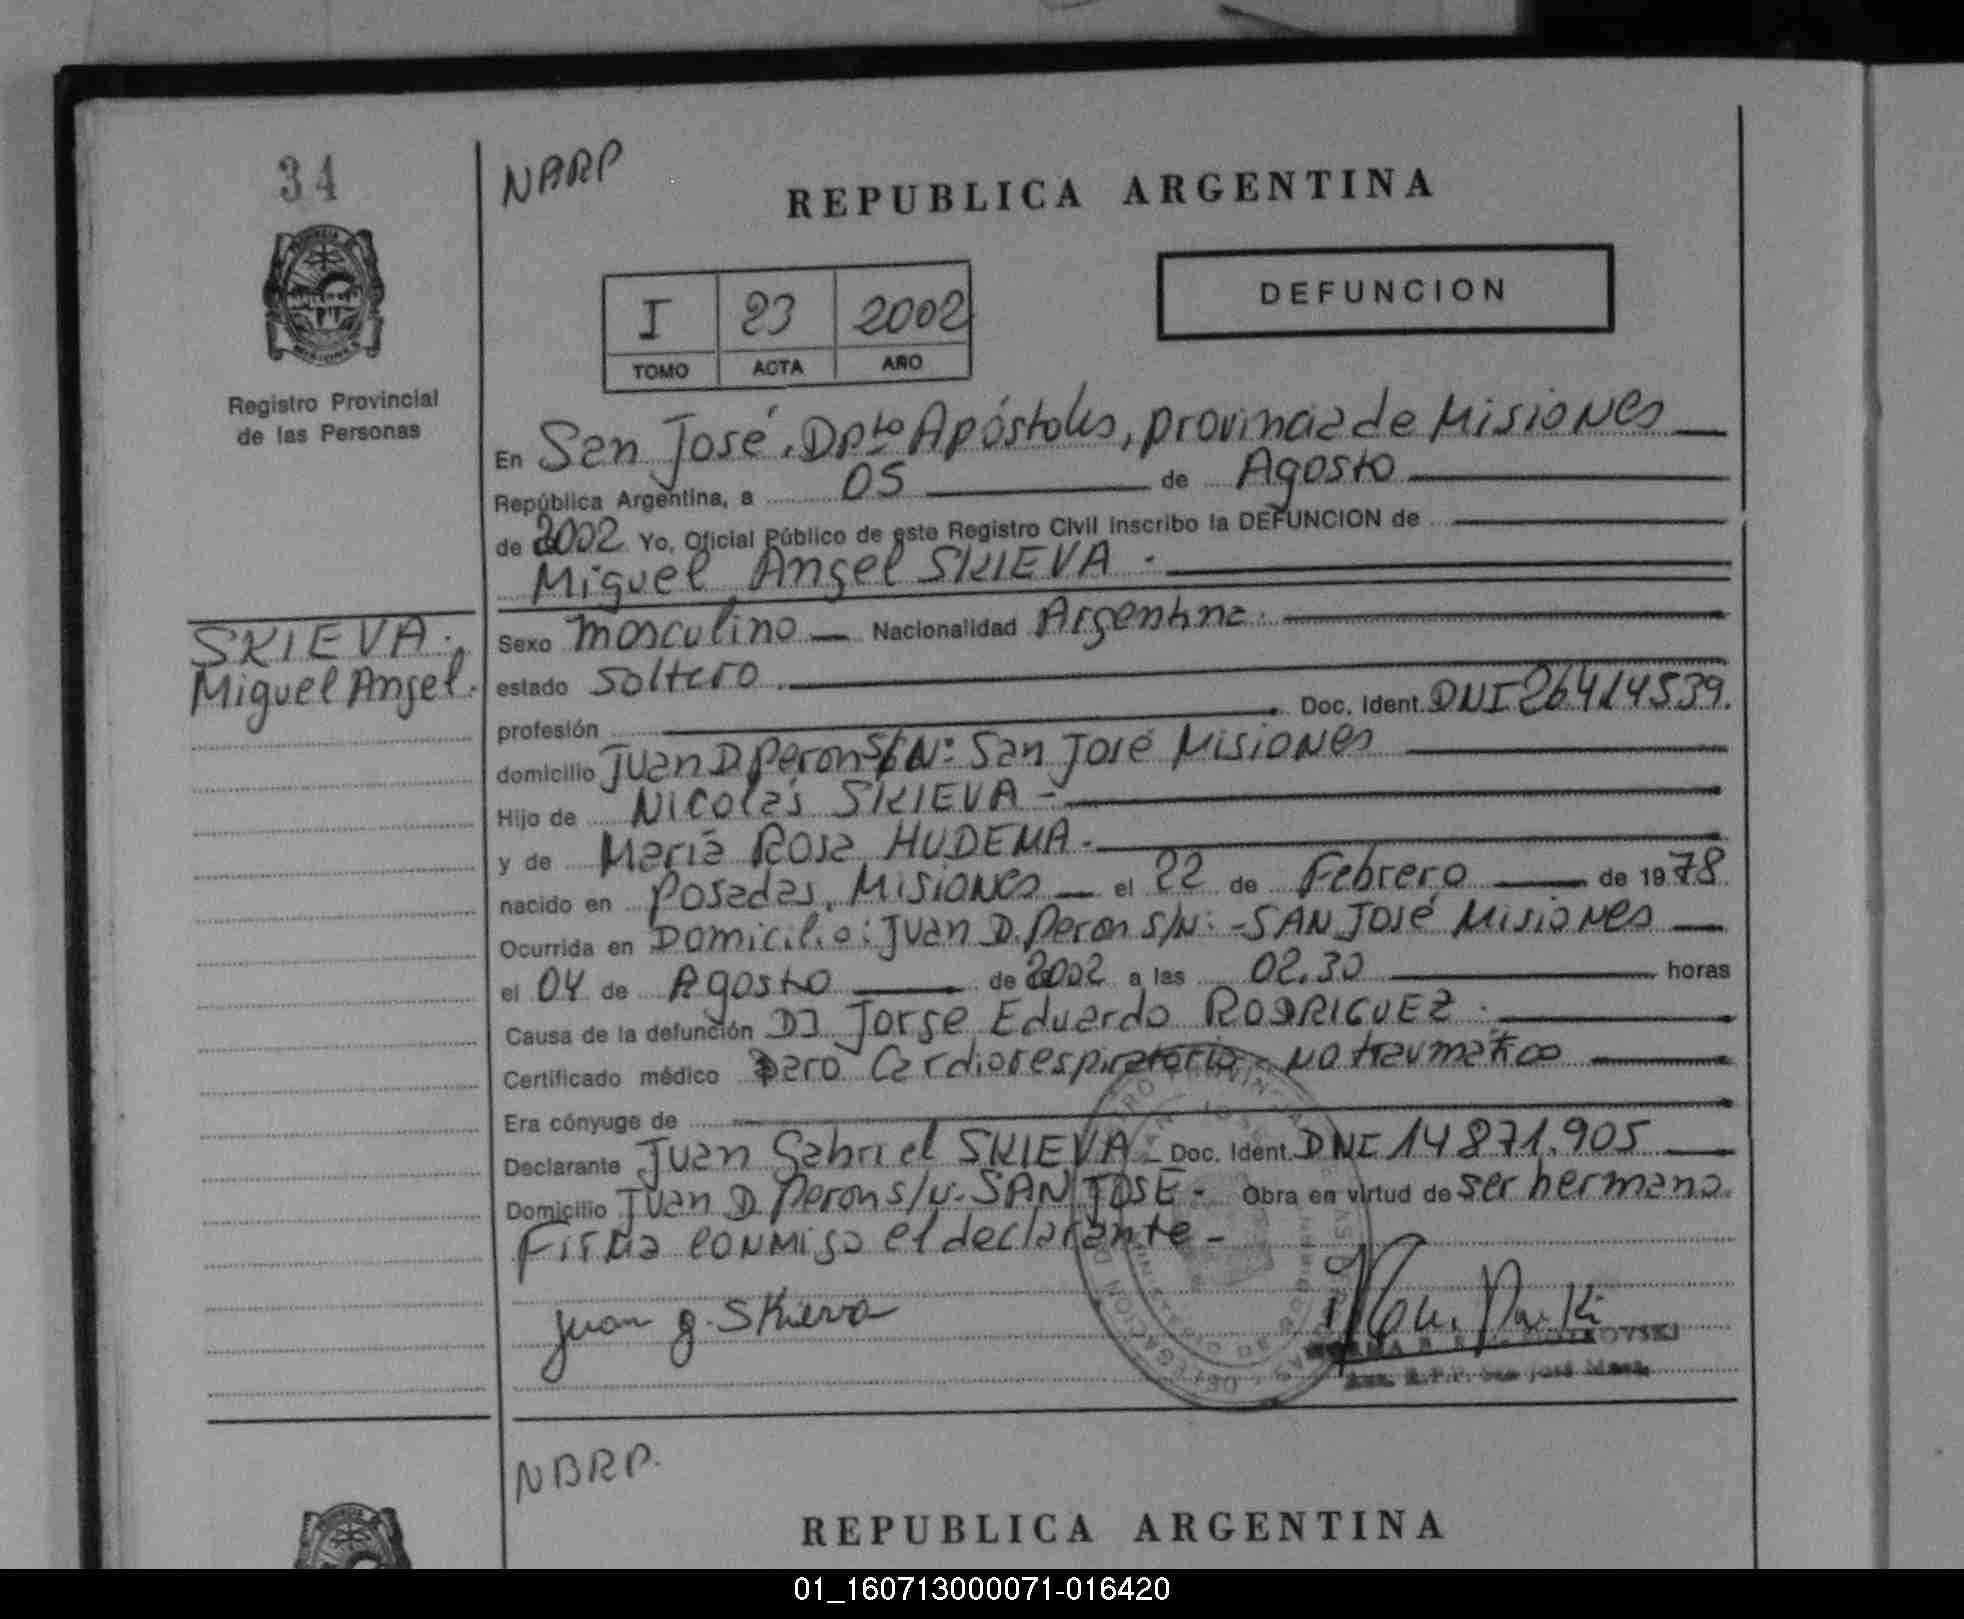 34
NBRP
REPUBLICA ARGENTINA
DEFUNCION
I 23 2002
TOMO ACTA AÑO
Registro Provincial
de las Personas
SKIEVA.
Miguel Angel.
En San José, Dpto Apóstoles, provincia de Misiones
República Argentina, a 05 de Agosto
de 2002 Yo, Oficial Público de este Registro Civil inscribo la DEFUNCION de
Miguel Angel SKIEVA.
Sexo masculino Nacionalidad Argentina.
estado soltero.
profesión Doc. Ident. DNI 26414539.
domicilio Juan D. Peron S/Nº San José Misiones
Hijo de Nicolás SKIEVA -
y de María Rosa HUDEMA.
nacido en Posadas, Misiones el 22 de Febrero de 1978
Ocurrida en Domicilio: Juan D. Peron S/N: - SAN José Misiones
el 04 de Agosto de 2002 a las 02.30 horas
Causa de la defunción Jorge Eduardo RODRIGUEZ.
Certificado médico Paro Cardiorespiratorio - no traumatico
Era cónyuge de
Declarante Juan Gabriel SKIEVA - Doc. Ident. DNI 14871.905
Domicilio Juan D. Peron S/N. SAN JOSE - Obra en virtud de ser hermano.
Firma conmigo el declarante -
Juan G. Skieva
NBRP.
REPUBLICA ARGENTINA
01_160713000071-016420